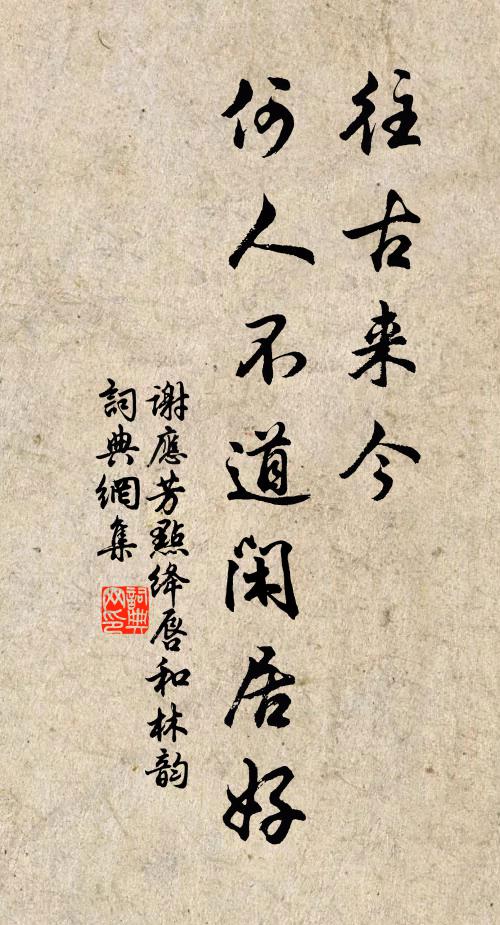 往古来今
何人不道闲居好
谢應芳點绛唇和林韵
詞典網集
詞典网印